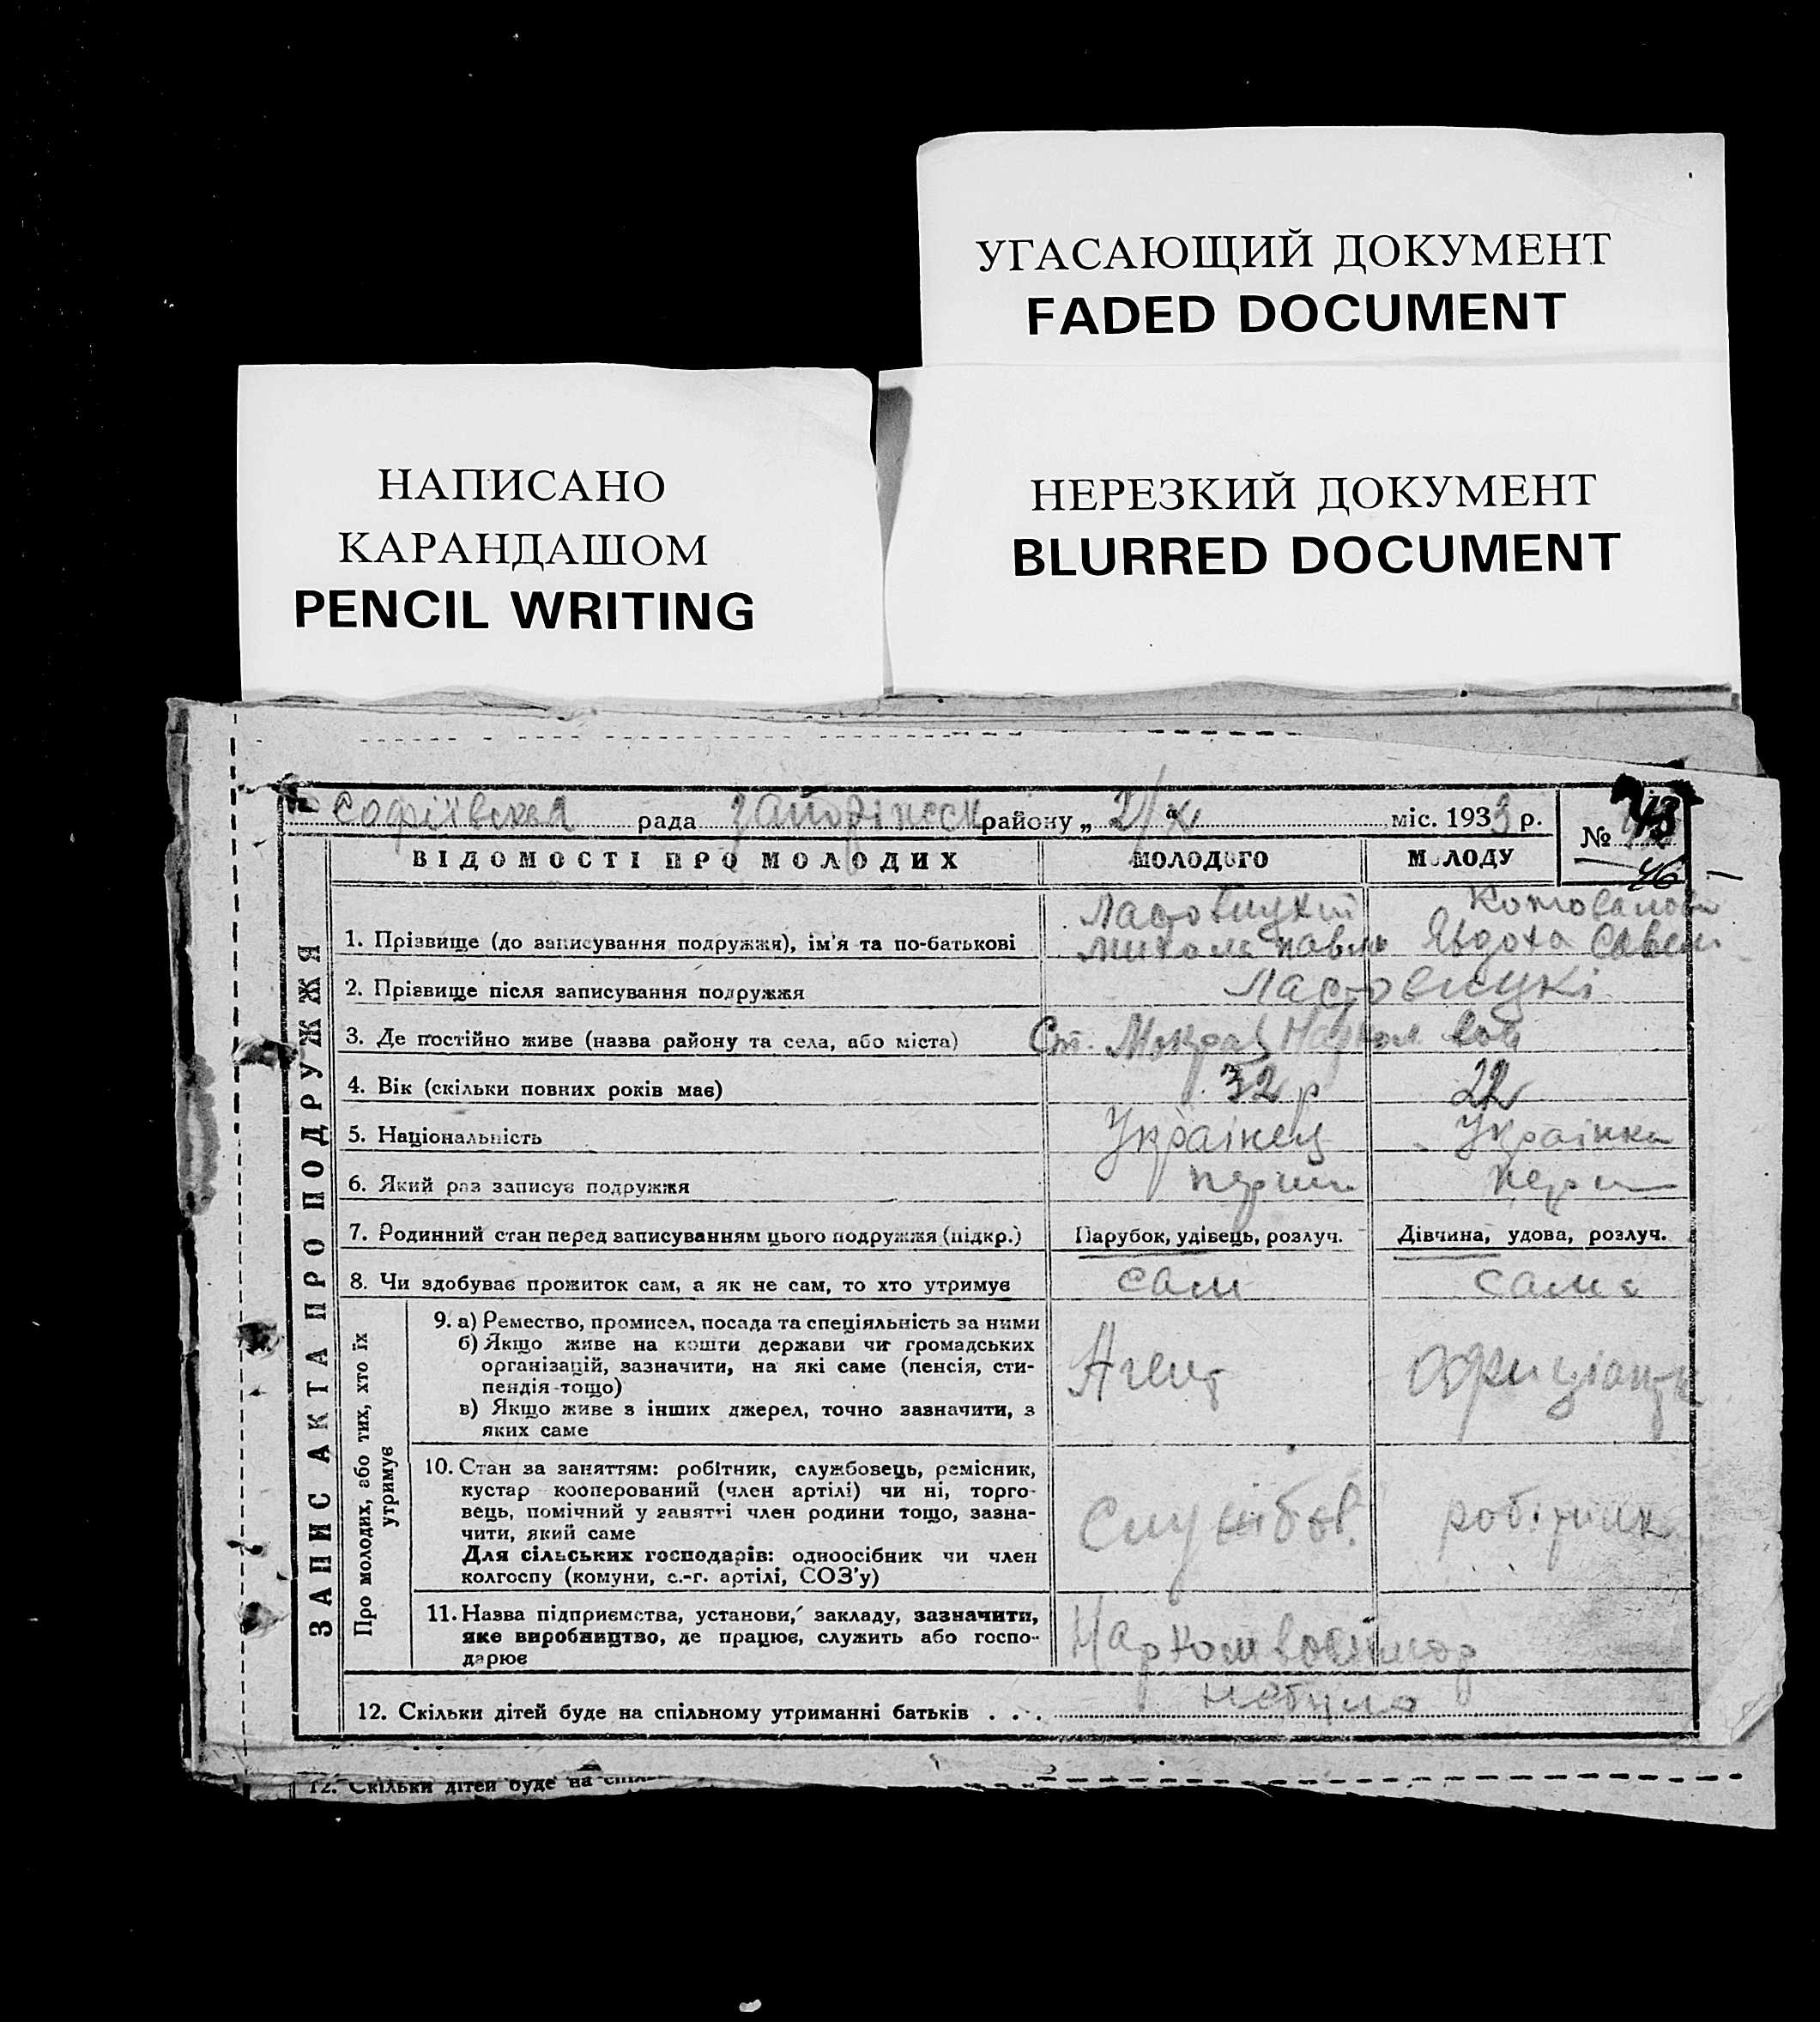 УГАСАЮЩИЙ ДОКУМЕНТ
FADED DOCUMENT
НАПИСАНО
КАРАНДАШОМ
PENCIL WRITING
НЕРЕЗКИЙ ДОКУМЕНТ
BLURRED DOCUMENT
Софіївська рада району „ 2/X “ міс. 1933 р.
№ 46
ВІДОМОСТІ ПРО МОЛОДИХ МОЛОДОГО МОЛОДУ
ЗАПИС АКТА ПРО ПОДРУЖЖЯ
1. Прізвище (до записування подружжя), ім'я та по-батькові Ластовицкий Микола Павл Явдоха Савел
2. Прізвище після записування подружжя Ластовицкі
3. Де постійно живе (назва району та села, або міста) Ст. Мокрая
4. Вік (скільки повних років має) 32 р 22
5. Національність Українец Українка
6. Який раз записує подружжя перши перш
7. Родинний стан перед записуванням цього подружжя (підкр.) Парубок, удівець, розлуч. Дівчина, удова, розлуч.
8. Чи здобуває прожиток сам, а як не сам, то хто утримує сам сама
Про молодих, або тих, хто їх
утримує
9. а) Ремество, промисел, посада та спеціяльність за ними
б) Якщо живе на кошти держави чи громадських
організацій, зазначити, на які саме (пенсія, сти-
пендія тощо)
в) Якщо живе з інших джерел, точно зазначити, з
яких саме
Агент Официантк
10. Стан за заняттям: робітник, службовець, ремісник,
кустар кооперований (член артілі) чи ні, торго-
вець, помічний у занятті член родини тощо, зазна-
чити, який саме
Для сільських господарів: одноосібник чи член
колгоспу (комуни, с.-г. артілі, СОЗ'у)
Службов. робітник
11. Назва підприємства, установи, закладу, зазначити,
яке виробництво, де працює, служить або госпо-
дарює
Наркомвоенмор
12. Скільки дітей буде на спільному утриманні батьків . . . небуло
12. Скільки дітей буде на